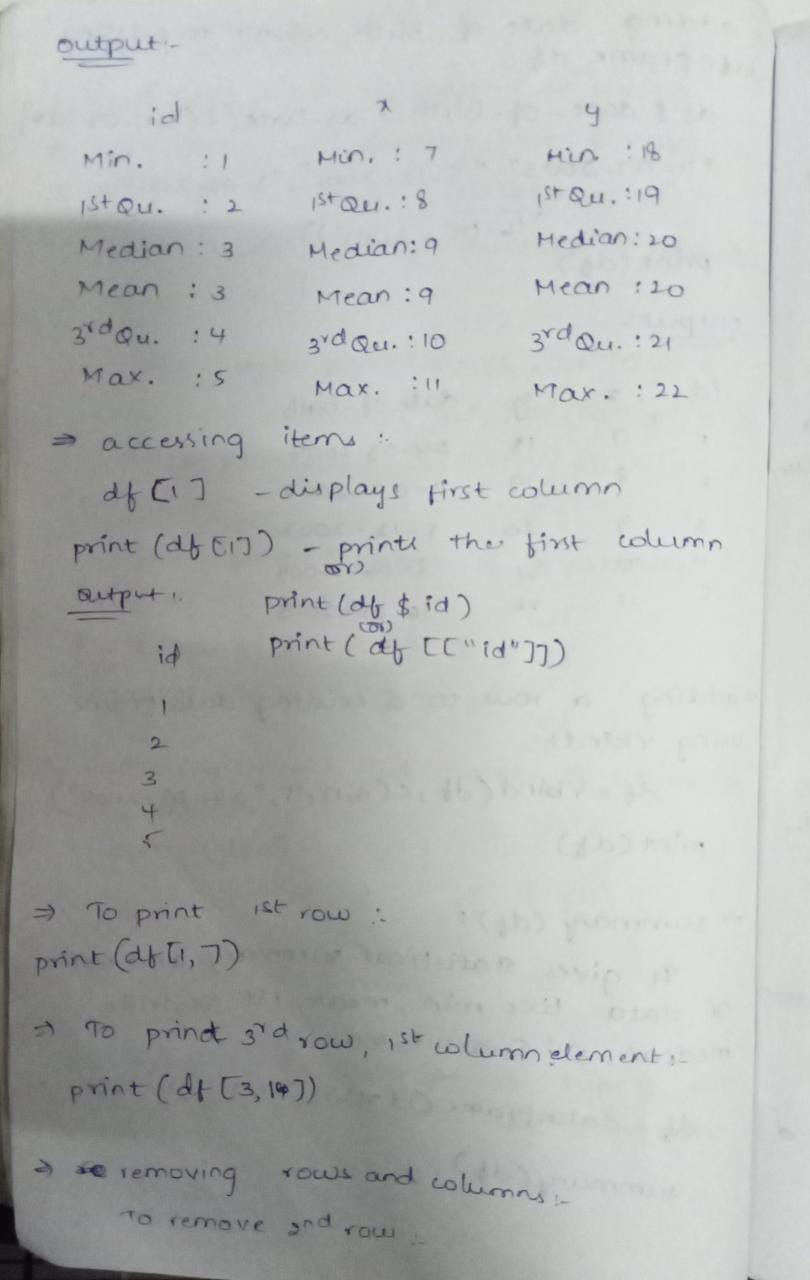 output:-
id x y
Min. : 1 Min. : 7 Min : 18
1st Qu. : 2 1st Qu. : 8 1st Qu. : 19
Median : 3 Median : 9 Median : 20
Mean : 3 Mean : 9 Mean : 20
3rd Qu. : 4 3rd Qu. : 10 3rd Qu. : 21
Max. : 5 Max. : 11 Max. : 22
⇒ accessing items :-
df [1] - displays first column
print (df [1]) - prints the first column
(or)
output :- print (df $ id)
(or)
id print ( df [["id"]])
1
2
3
4
5
⇒ To print 1st row :-
print (df [1, ])
⇒ To print 3rd row, 1st column element :-
print (df [3, 1])
⇒ removing rows and columns :-
To remove 2nd row :-